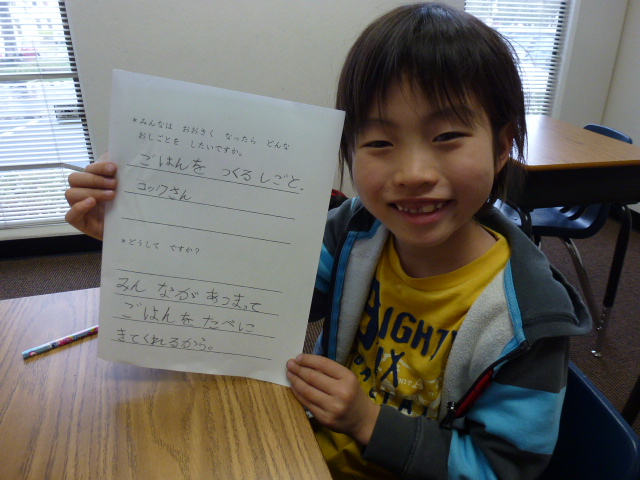 *みんなは おおきく なったら どんな
おしごとを したいですか。
ごはんを つくるしごと.
コックさん
*どうして ですか?
みん ながあつまって
ごはんをたべに
きてくれるから。
IGHTY
IX